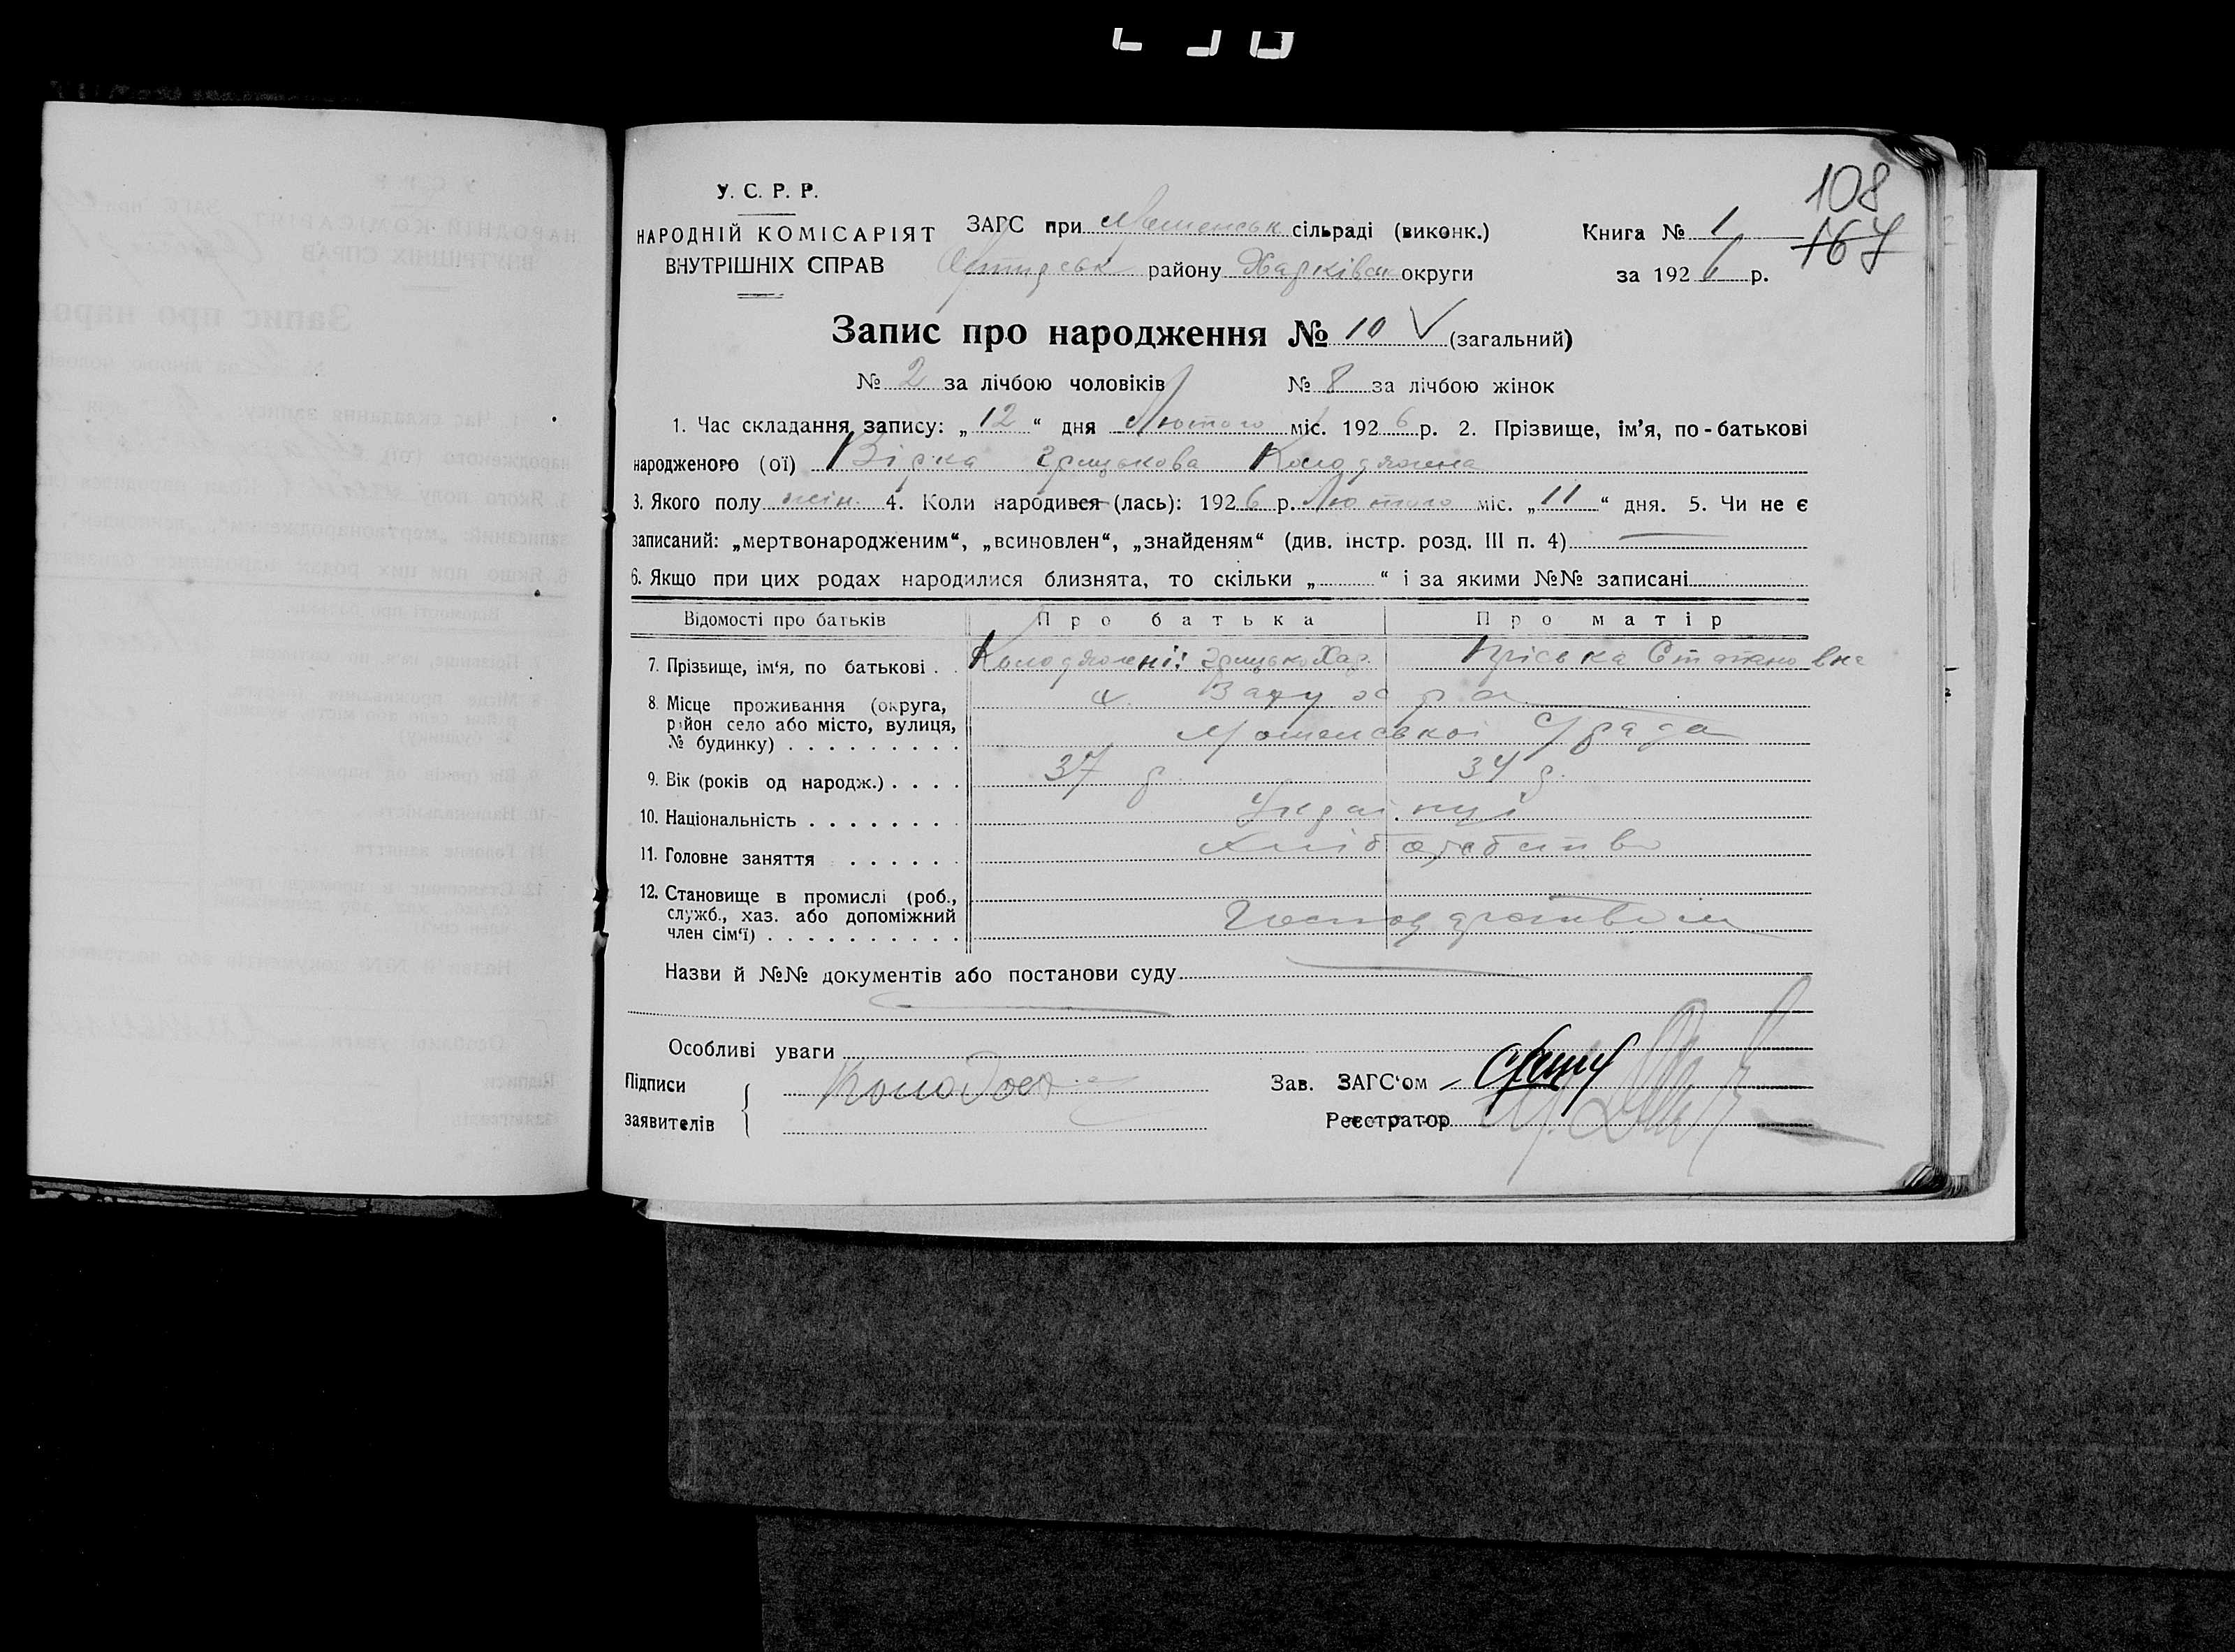 108
У. С. Р. Р.
НАРОДНІЙ КОМІСАРІЯТ
ВНУТРІШНІХ СПРАВ
ЗАГС при сільраді (виконк.)
району Харківськ округи
Книга № 1
167
за 1926 р.
Запис про народження № 10 (загальний)
№ 2 за лічбою чоловіків № 8 за лічбою жінок
1. Час складання запису: „12“ дня Лютого міс. 1926 р. 2. Прізвище, ім’я, по-батькові
народженого (ої) Вірка Грицькова Колодяжна
3. Якого полу жін. 4. Коли народився (лась): 1926 р. Лютого міс. „11“ дня. 5. Чи не є
записаний: „мертвонародженим“, „всиновлен“, „знайденям“ (див. інстр. розд. III п. 4)
6. Якщо при цих родах народилися близнята, то скільки „ “ і за якими №№ записані
Відомості про батьків Про батька Про матір
7. Прізвище, ім‘я, по батькові . . Колодяжній Грицько Хар. Пріська Степановна
8. Місце проживання (округа,
район село або місто, вулиця,
№ будинку) . . . . . . . . .
9. Вік (років од народж.) . . . . 37 р. 34 р.
10. Національність . . . . . . . . Українці
11. Головне заняття . . . . . . Хліборобство
12. Становище в промислі (роб.,
служб., хаз. або допоміжний
член сім‘ї) . . . . . . . . . .
Назви й №№ документів або постанови суду
Особливі уваги
Підписи
заявителів
Зав. ЗАГС‘ом
Реєстратор